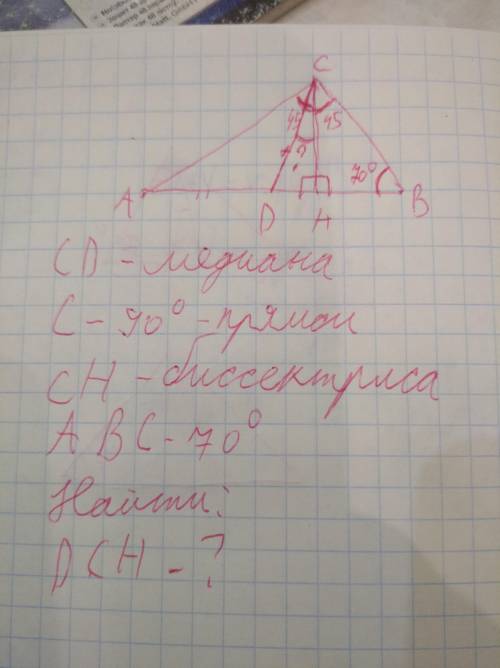 C
45 45
?
70°
A D H B
CD - медиана
C - 90° - прямой
CH - биссектриса
ABC - 70°
Найти:
DCH - ?